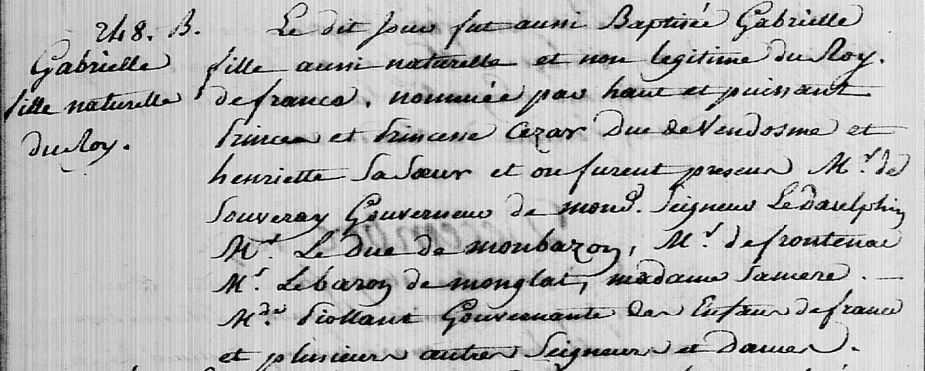 248. B.
Gabrielle
fille naturelle
du Roy.
Le dit Jour fut aussi Baptisée Gabrielle
fille aussi naturelle et non legitime du Roy.
de france. nommée par haut et puissant
Prince et Princesse Cezar Duc de Vendosme et
henriette Sa Sœur et ou furent presens Mr. de
Souveray Gouverneur de mond. Seigneur Le Daulphin
Mr. Le Duc de monbazon, Mr. de frontenac
Mr. Le baron de monglat, madame Sa mere. —
Md.e Piollant Gouvernante des Enfans de france
et plusieurs autres Seigneurs et Dames.